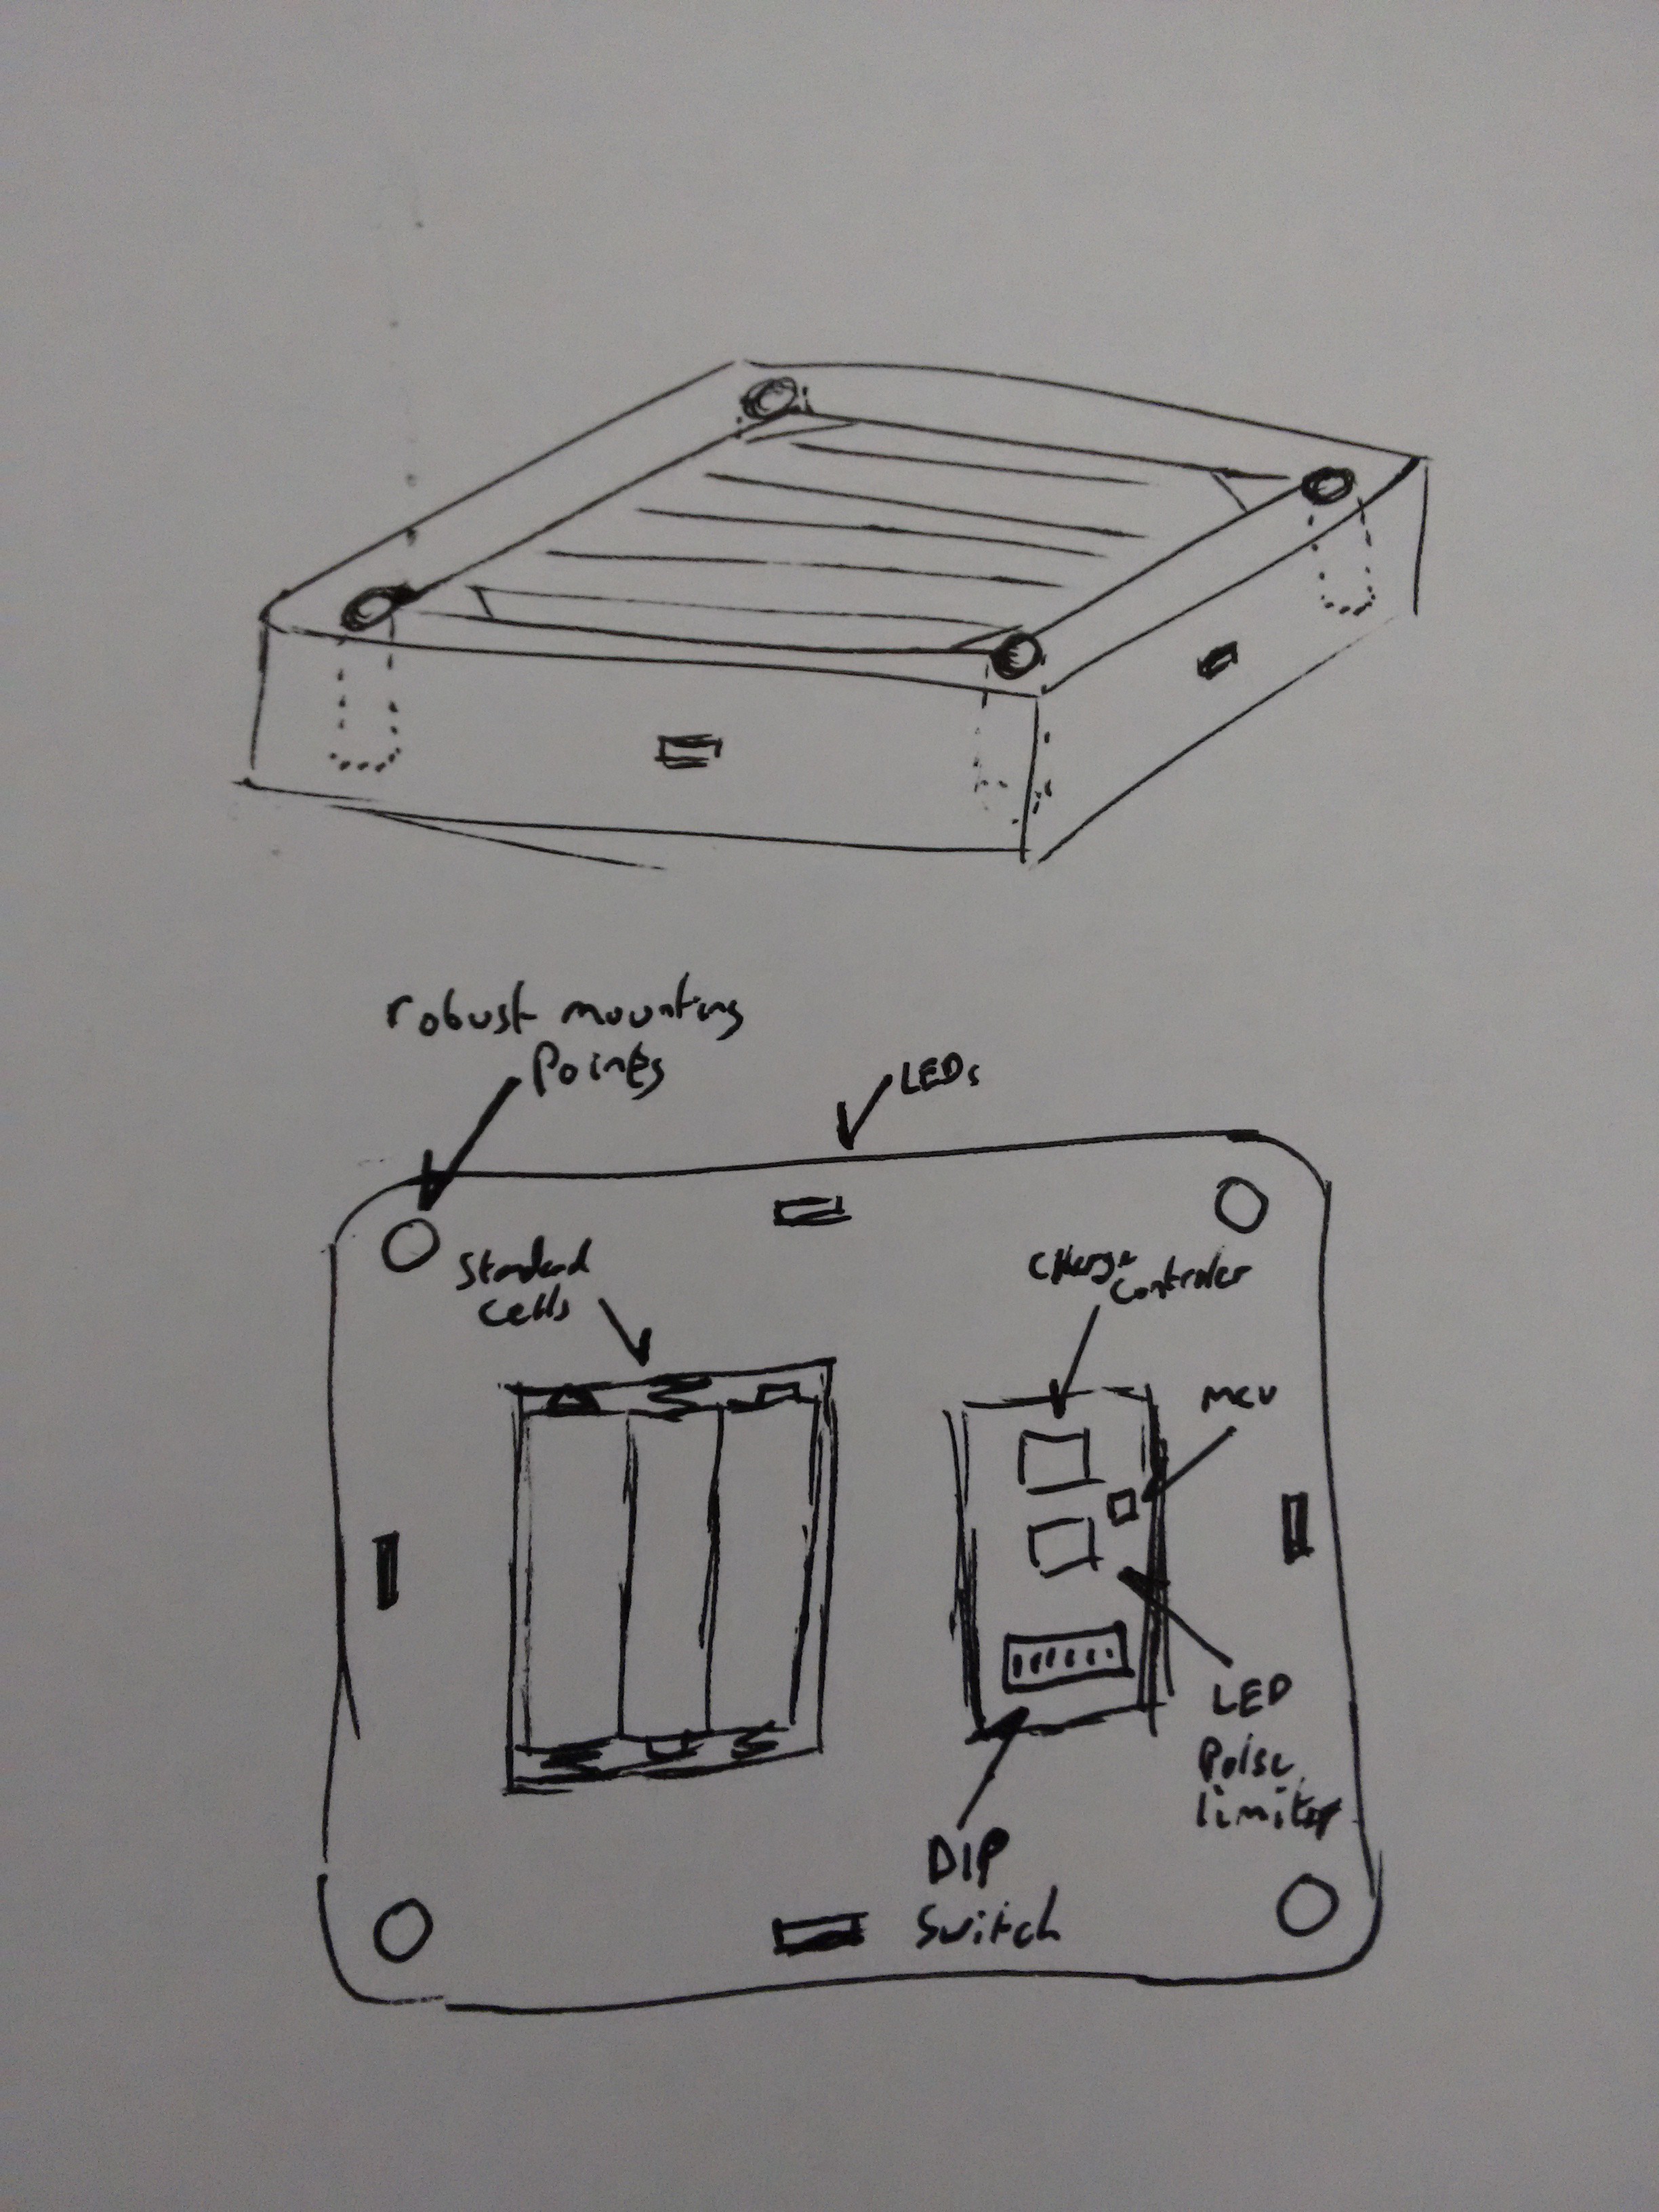 robust mounting
points
LEDs
Standard
cells
charge
controler
MCU
LED
Pulse
limiter
DIP
Switch